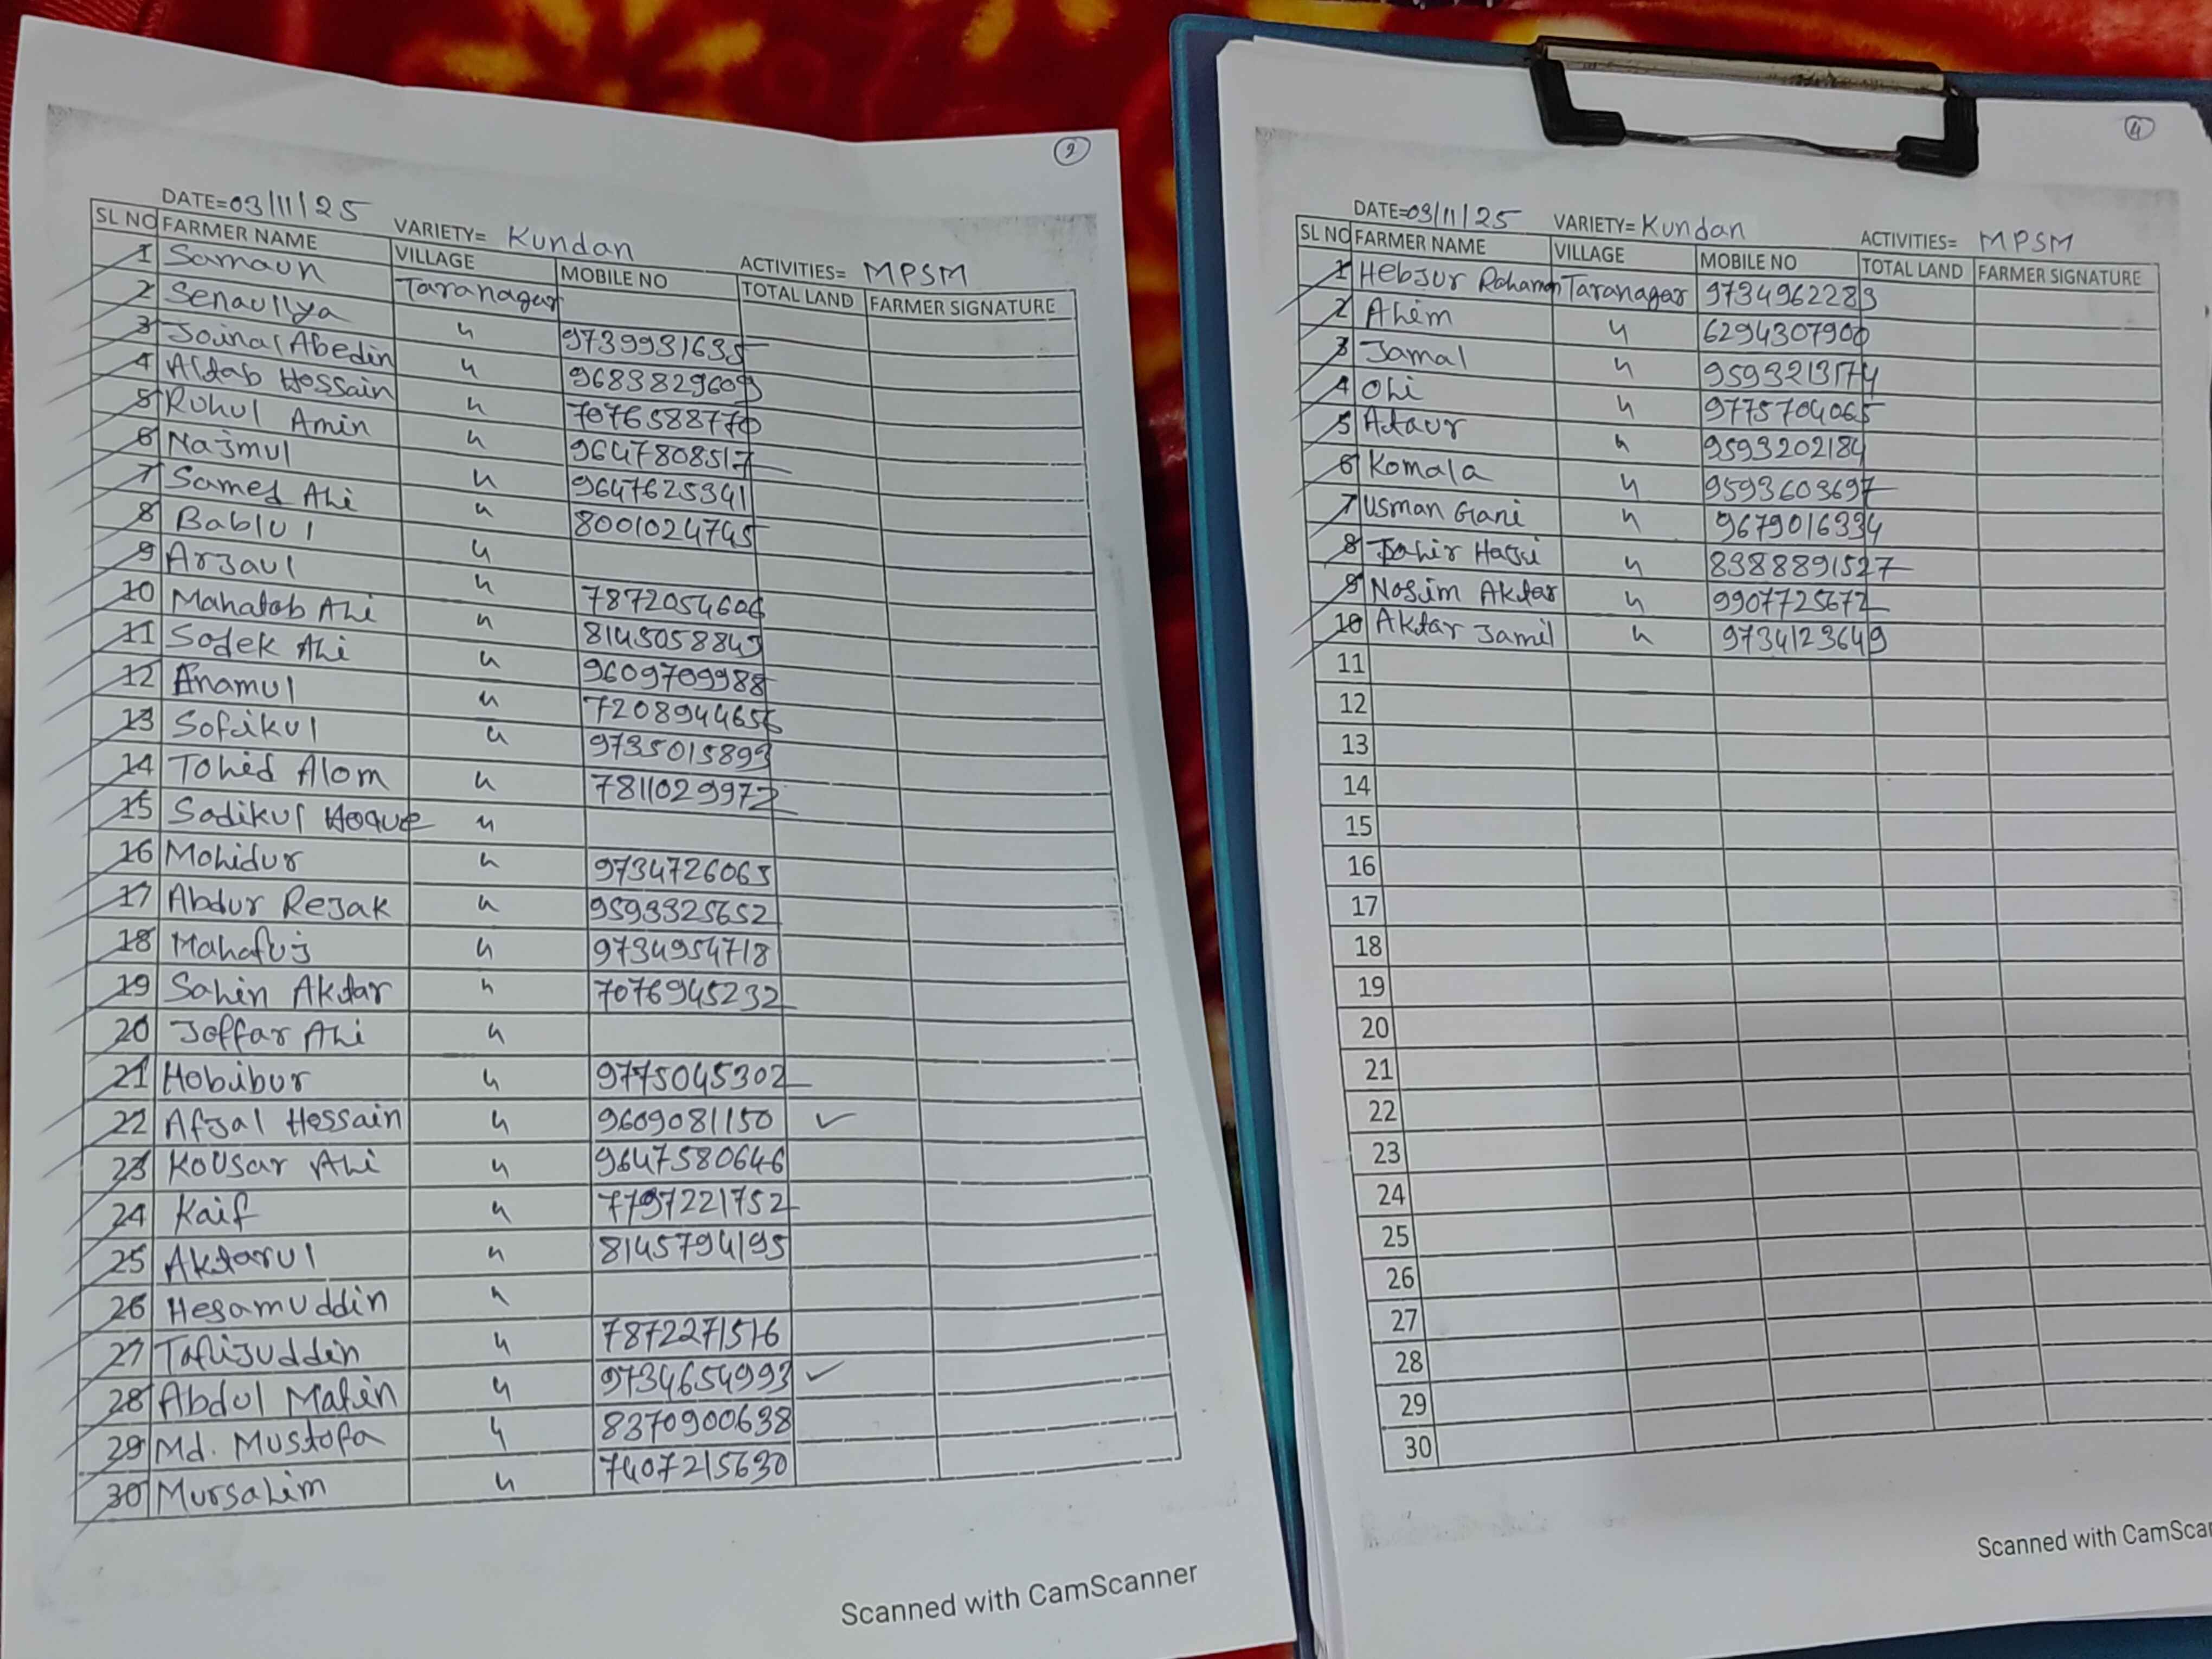 2
DATE=03/11/25 VARIETY= Kundan ACTIVITIES= MPSM
SL NO FARMER NAME VILLAGE MOBILE NO TOTAL LAND FARMER SIGNATURE
1 Samaun Taranagar
2 Senaullya " 9739931635
3 Joinal Abedin " 9683829609
4 Altab Hossain " 7076588770
5 Ruhul Amin " 9647808517
6 Najmul " 9647625341
7 Samed Ali " 8001024745
8 Bablul "
9 Arjaul " 7872054606
10 Mahatab Ali " 8145058843
11 Sodek Ali " 9609709988
12 Anamul " 7208944656
13 Sofikul " 9735015893
14 Tohid Alom " 7811029972
15 Sadikul Hoque "
16 Mohidur " 9734726065
17 Abdur Rejak " 9593325652
18 Mahafuj " 9734954718
19 Sahin Aktar " 7076945232
20 Joffar Ali "
21 Hobibur " 9775045302
22 Afjal Hossain " 9609081150 ✓
23 Kousar Ali " 9647580646
24 Kaif " 7797221752
25 Aktarul " 8145794195
26 Hesamuddin "
27 Tofijuddin " 7872271516
28 Abdul Matin " 9734654993 ✓
29 Md. Mustofa " 8370900638
30 Mursalim " 7407215630
Scanned with CamScanner
4
DATE=03/11/25 VARIETY= Kundan ACTIVITIES= MPSM
SL NO FARMER NAME VILLAGE MOBILE NO TOTAL LAND FARMER SIGNATURE
1 Hebjur Rohaman Taranagar 9734962283
2 Alim " 6294307900
3 Jamal " 9593213174
4 Oli " 9775704065
5 Ataur " 9593202184
6 Komala " 9593603697
7 Usman Gani " 9679016334
8 Johir Hajji " 8388891527
9 Nosim Aktar " 9907725672
10 Aktar Jamil " 9734123649
11
12
13
14
15
16
17
18
19
20
21
22
23
24
25
26
27
28
29
30
Scanned with CamScan